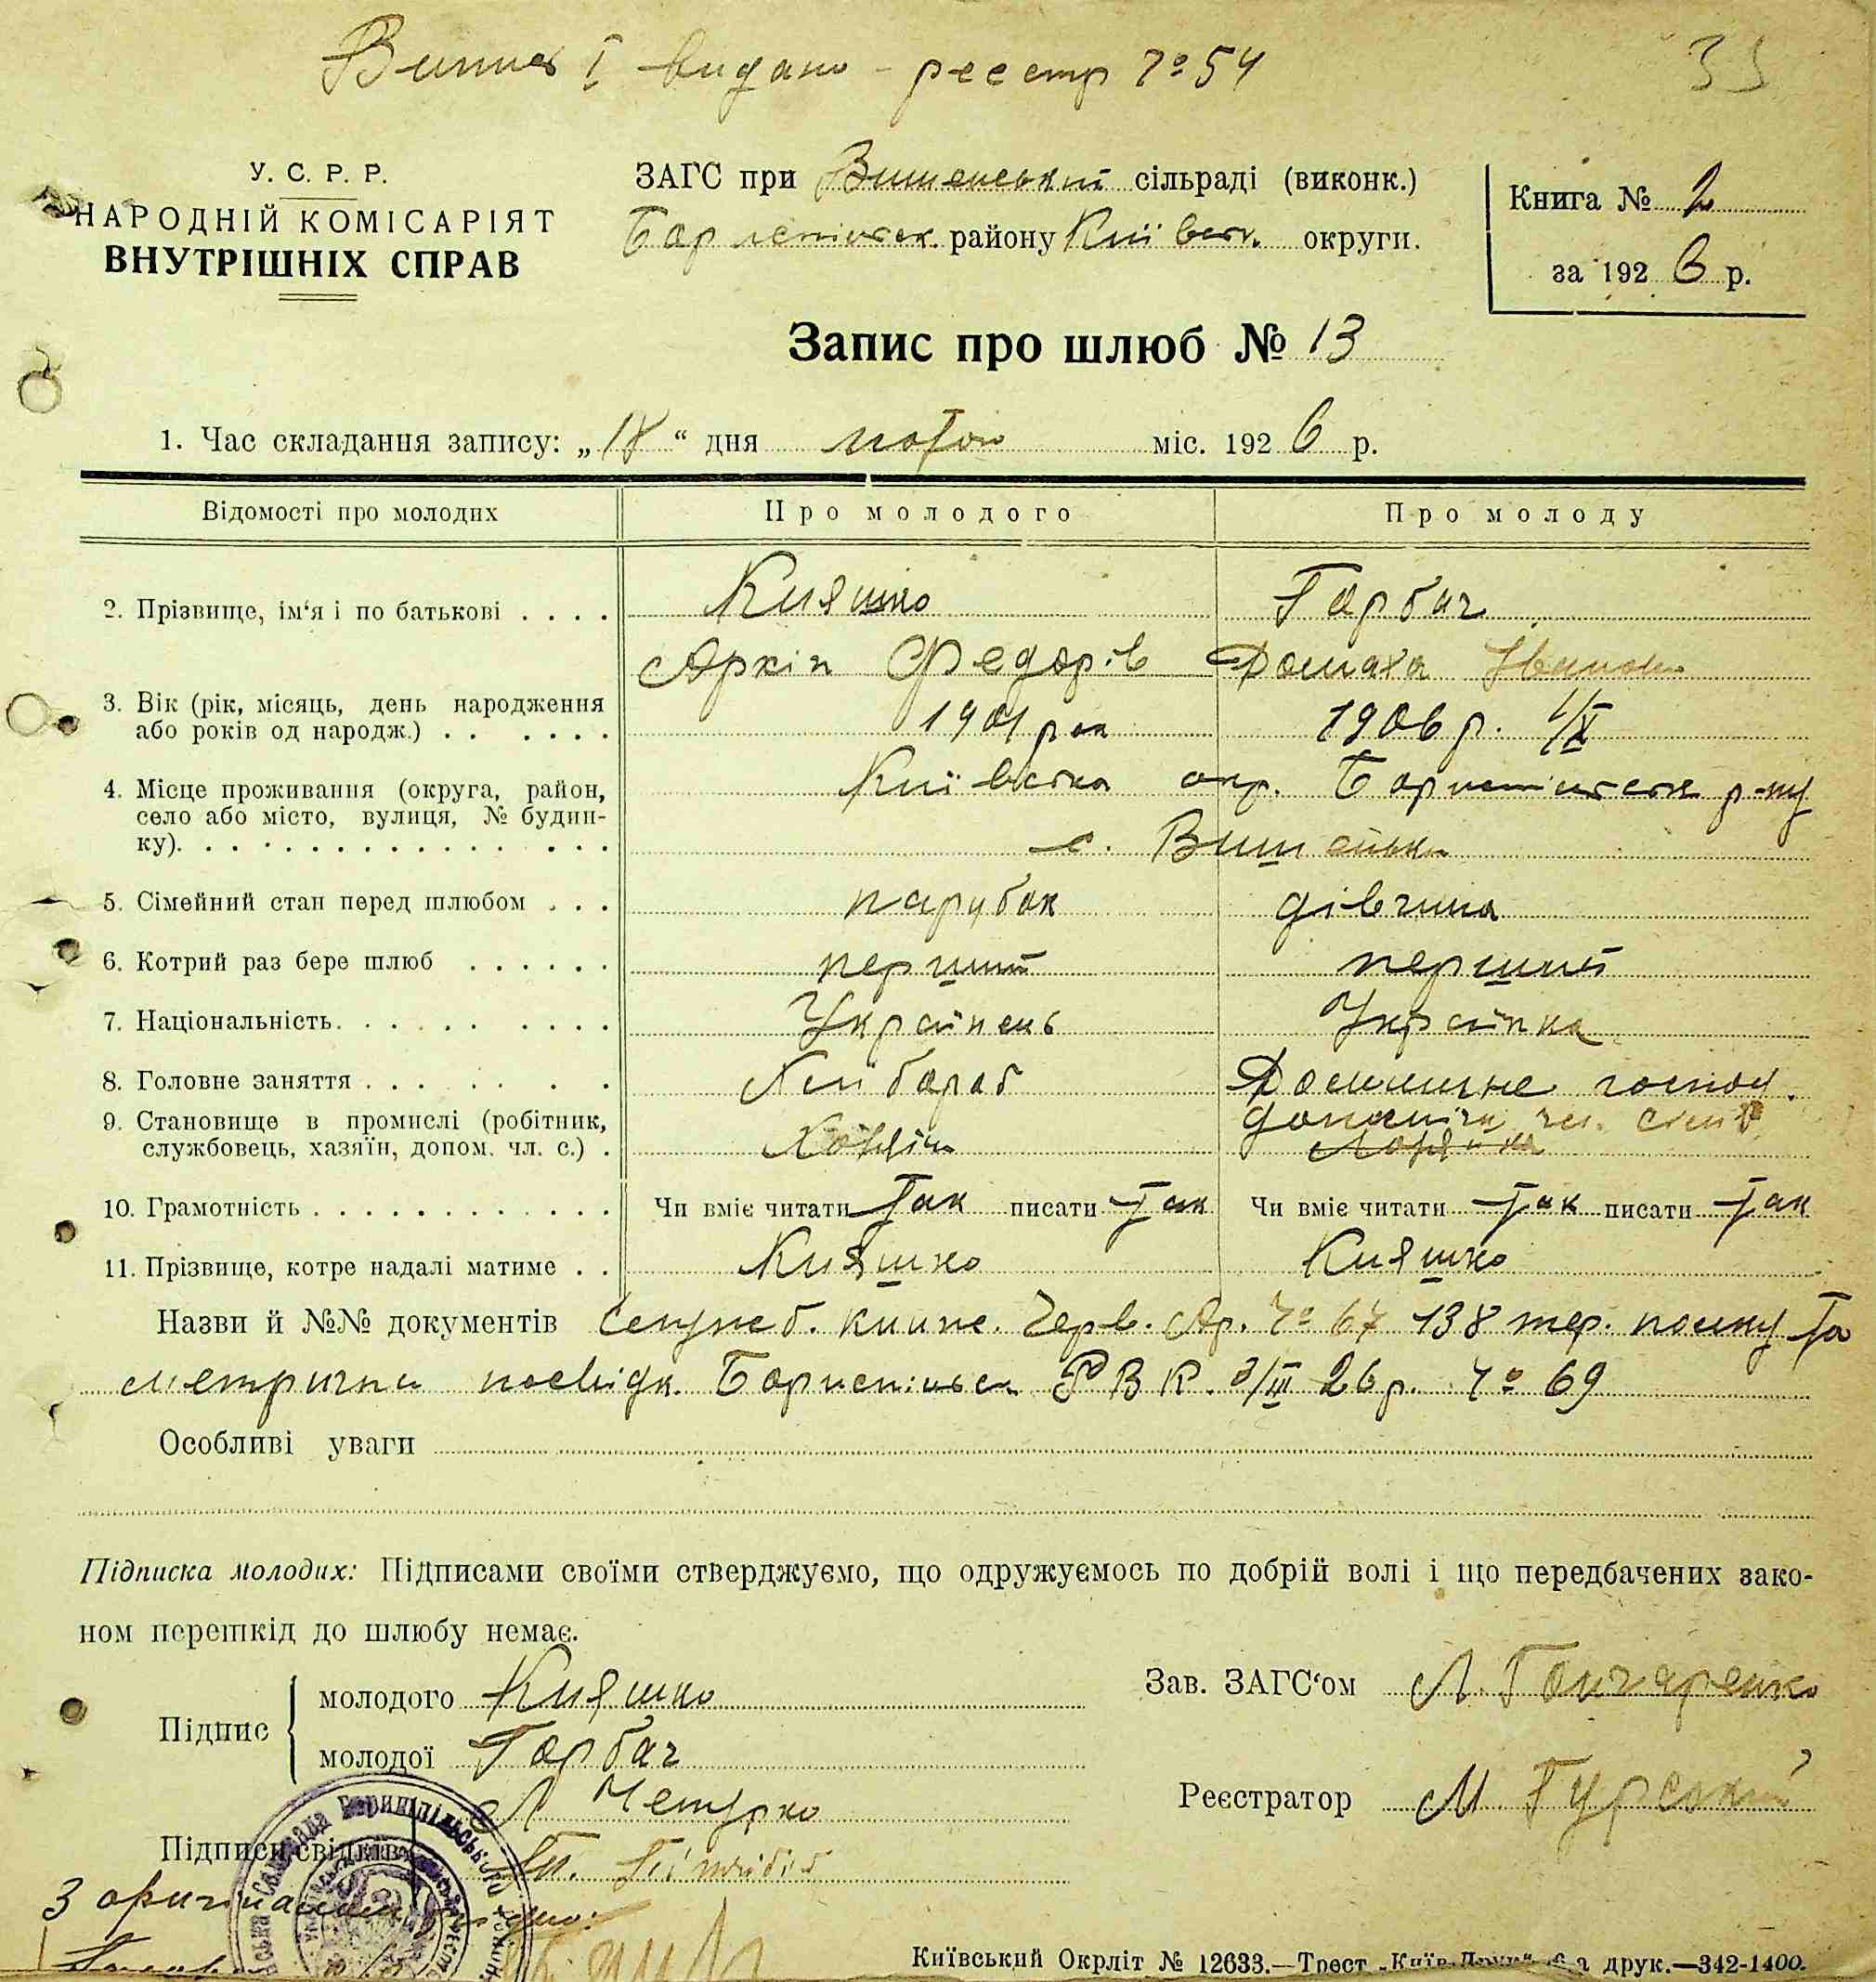 Випис I видано - реєстр № 54
33
У. С. Р. Р.
НАРОДНІЙ КОМІСАРІЯТ
ВНУТРІШНІХ СПРАВ
ЗАГС при Вишенській сільраді (виконк.)
району Київськ. округи.
Книга № 2
за 1926 р.
Запис про шлюб № 13
1. Час складання запису: „18“ дня лютого міс. 1926 р.
Відомості про молодих Про молодого Про молоду
2. Прізвище, ім‘я і по батькові . . . . Кияшко Горбач
Архіп Федорів Домаха Іванова
3. Вік (рік, місяць, день народження
або років од народж.) . . . . . . 1901 рок 1906 р. 1/X
4. Місце проживання (округа, район,
село або місто, вулиця, № будин-
ку). Київська окр. Бориспільськ р-ну
с. Вишеньки
5. Сімейний стан перед шлюбом . . . парубок дівчина
6. Котрий раз бере шлюб . . . . . . перший перший
7. Національність. . . . . . . . . Українець Українка
8. Головне заняття . . . . . . . Хлібороб Домашнє господ.
9. Становище в промислі (робітник,
службовець, хазяїн, допом. чл. с.) . Хазяїн
10. Грамотність . . . . . . . . . . . . Чи вміє читати так писати так Чи вміє читати так писати так
11. Прізвище, котре надалі матиме . . Кияшко Кияшко
Назви й №№ документів Служеб. книж. Черв. Ар. № 67 138 тер. полку та
метричн посвідк. Бориспільськ РВК. 3/III 26 р. № 69
Особливі уваги
Підписка молодих: Підписами своїми стверджуємо, що одружуємось по добрій волі і що передбачених зако-
ном перешкід до шлюбу немає.
Підпис
молодого Кияшко
молодої Горбач
Зав. ЗАГС‘ом Л. Гончаренко
Реєстратор М. Гурський
Підписи свідків
З оригіналом
Київський Окрліт № 12633.—Трест „Київ-Друк“ 6-а друк.—342-1400.